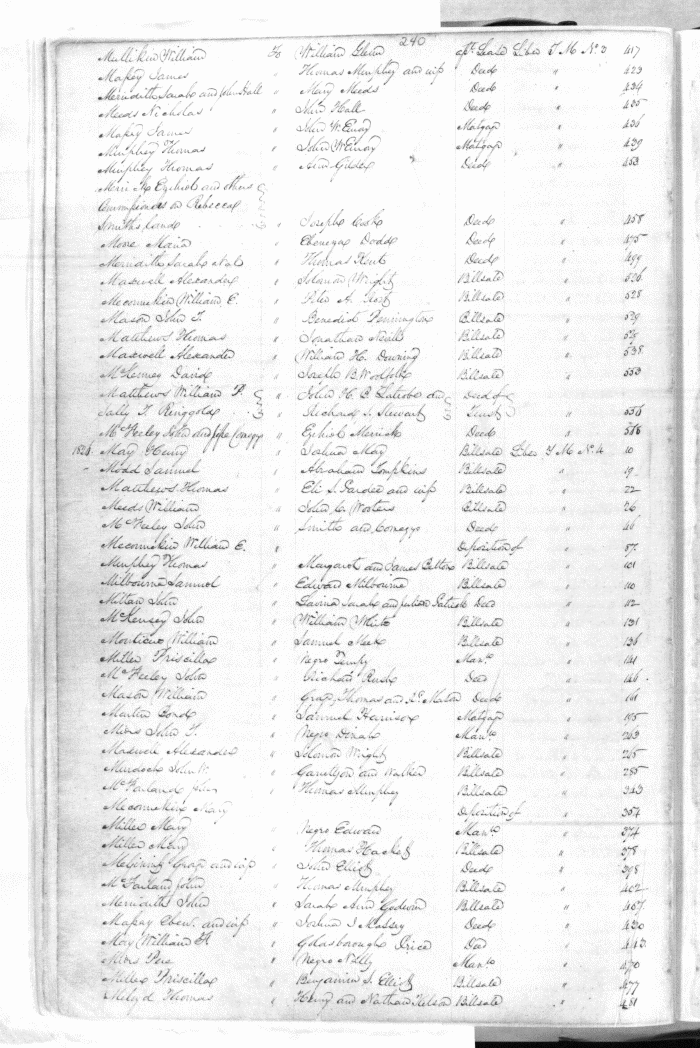 240
Mullikin William To William Glenn of Lease Liber T M No 3 417
Massey James " Thomas Murphey and wife Deed " 423
Meredith Sarah and John Hall " Mary Meeds Deed " 434
Meeds Nicholas " John Hall Deed " 435
Massey James " John W. Emory Matgage " 436
Murphey Thomas " John W Emory Matgage " 439
Murphey Thomas " Ann Deed " 453
Merrick Ezekiel and others
Commissioners on Rebecca
Smiths lands " Joseph Cook Deed " 458
Moore Maria " Ebenezer Dodd Deed " 475
Meredith Sarah " Thomas Kent Deed " 499
Maxwell Alexander " Solomon Wright Billsale " 526
Meconnekin William E. " Peter A. Billsale " 528
Mason John T. " Benedict Pennington Billsale " 529
Matthews Thomas " Jonathan Neall Billsale "
Maxwell Alexander " William H. Downing Billsale " 538
McKenney David " Joseph B. Billsale " 553
Matthews William P. " John H. B Latrobe and Deed of
Sally T. Ringgold " Richard S. Stewart Trust " 556
McFeeley John and " Ezekiel Merrick Deed " 586
1824 May Henry " Joshua May Billsale Liber T M No 4 10
Mead Samuel " Abraham Tompkins Billsale " 19
Matthews Thomas " Eli S. Pardee and wife " 22
Meeds William " John C. Wooters Billsale " 26
McFeeley John " Smith and Comegys Deed " 46
Meconnekin William E. " Deposition of " 87
Murphey Thomas " Margaret and James Billsale " 101
Milbourne Samuel " Edward Milbourne Billsale " 110
John " Lavina Sarah and Deed " 112
McKensey John " William White Billsale " 131
William " Samuel Meek Billsale " 136
Miller Priscilla " Negro Mann. " 141
McFeeley John " Deed " 146
Mason William " Thomas and Deed " 161
Martin " Samuel Harrison Matgage " 195
John T. " Negro Dinah Mann. " 263
Maxwell Alexander " Solomon Wright Billsale " 265
Murdoch John W. " and Walker Billsale " 285
McFarland John " Thomas Murphey Billsale " 343
Meconnekin Mary Deposition of " 354
Miller Mary " Negro Edward Mann. " 374
Miller Mary " Thomas Hacket Billsale " 378
and wife " John Elliott Deed " 398
McFarland John " Thomas Murphey Billsale " 402
Meredith John " Sarah Ann Godwin Billsale " 407
Massey Eben. and wife " Joshua J Massey Deed " 430
May William H " Goldsborough Price Deed " 443
" Negro Nelly Mann. " 470
Miller Priscilla " Benjamin S. Elliott Billsale " 477
Thomas " Henry and Nathan Nelson Billsale " 481